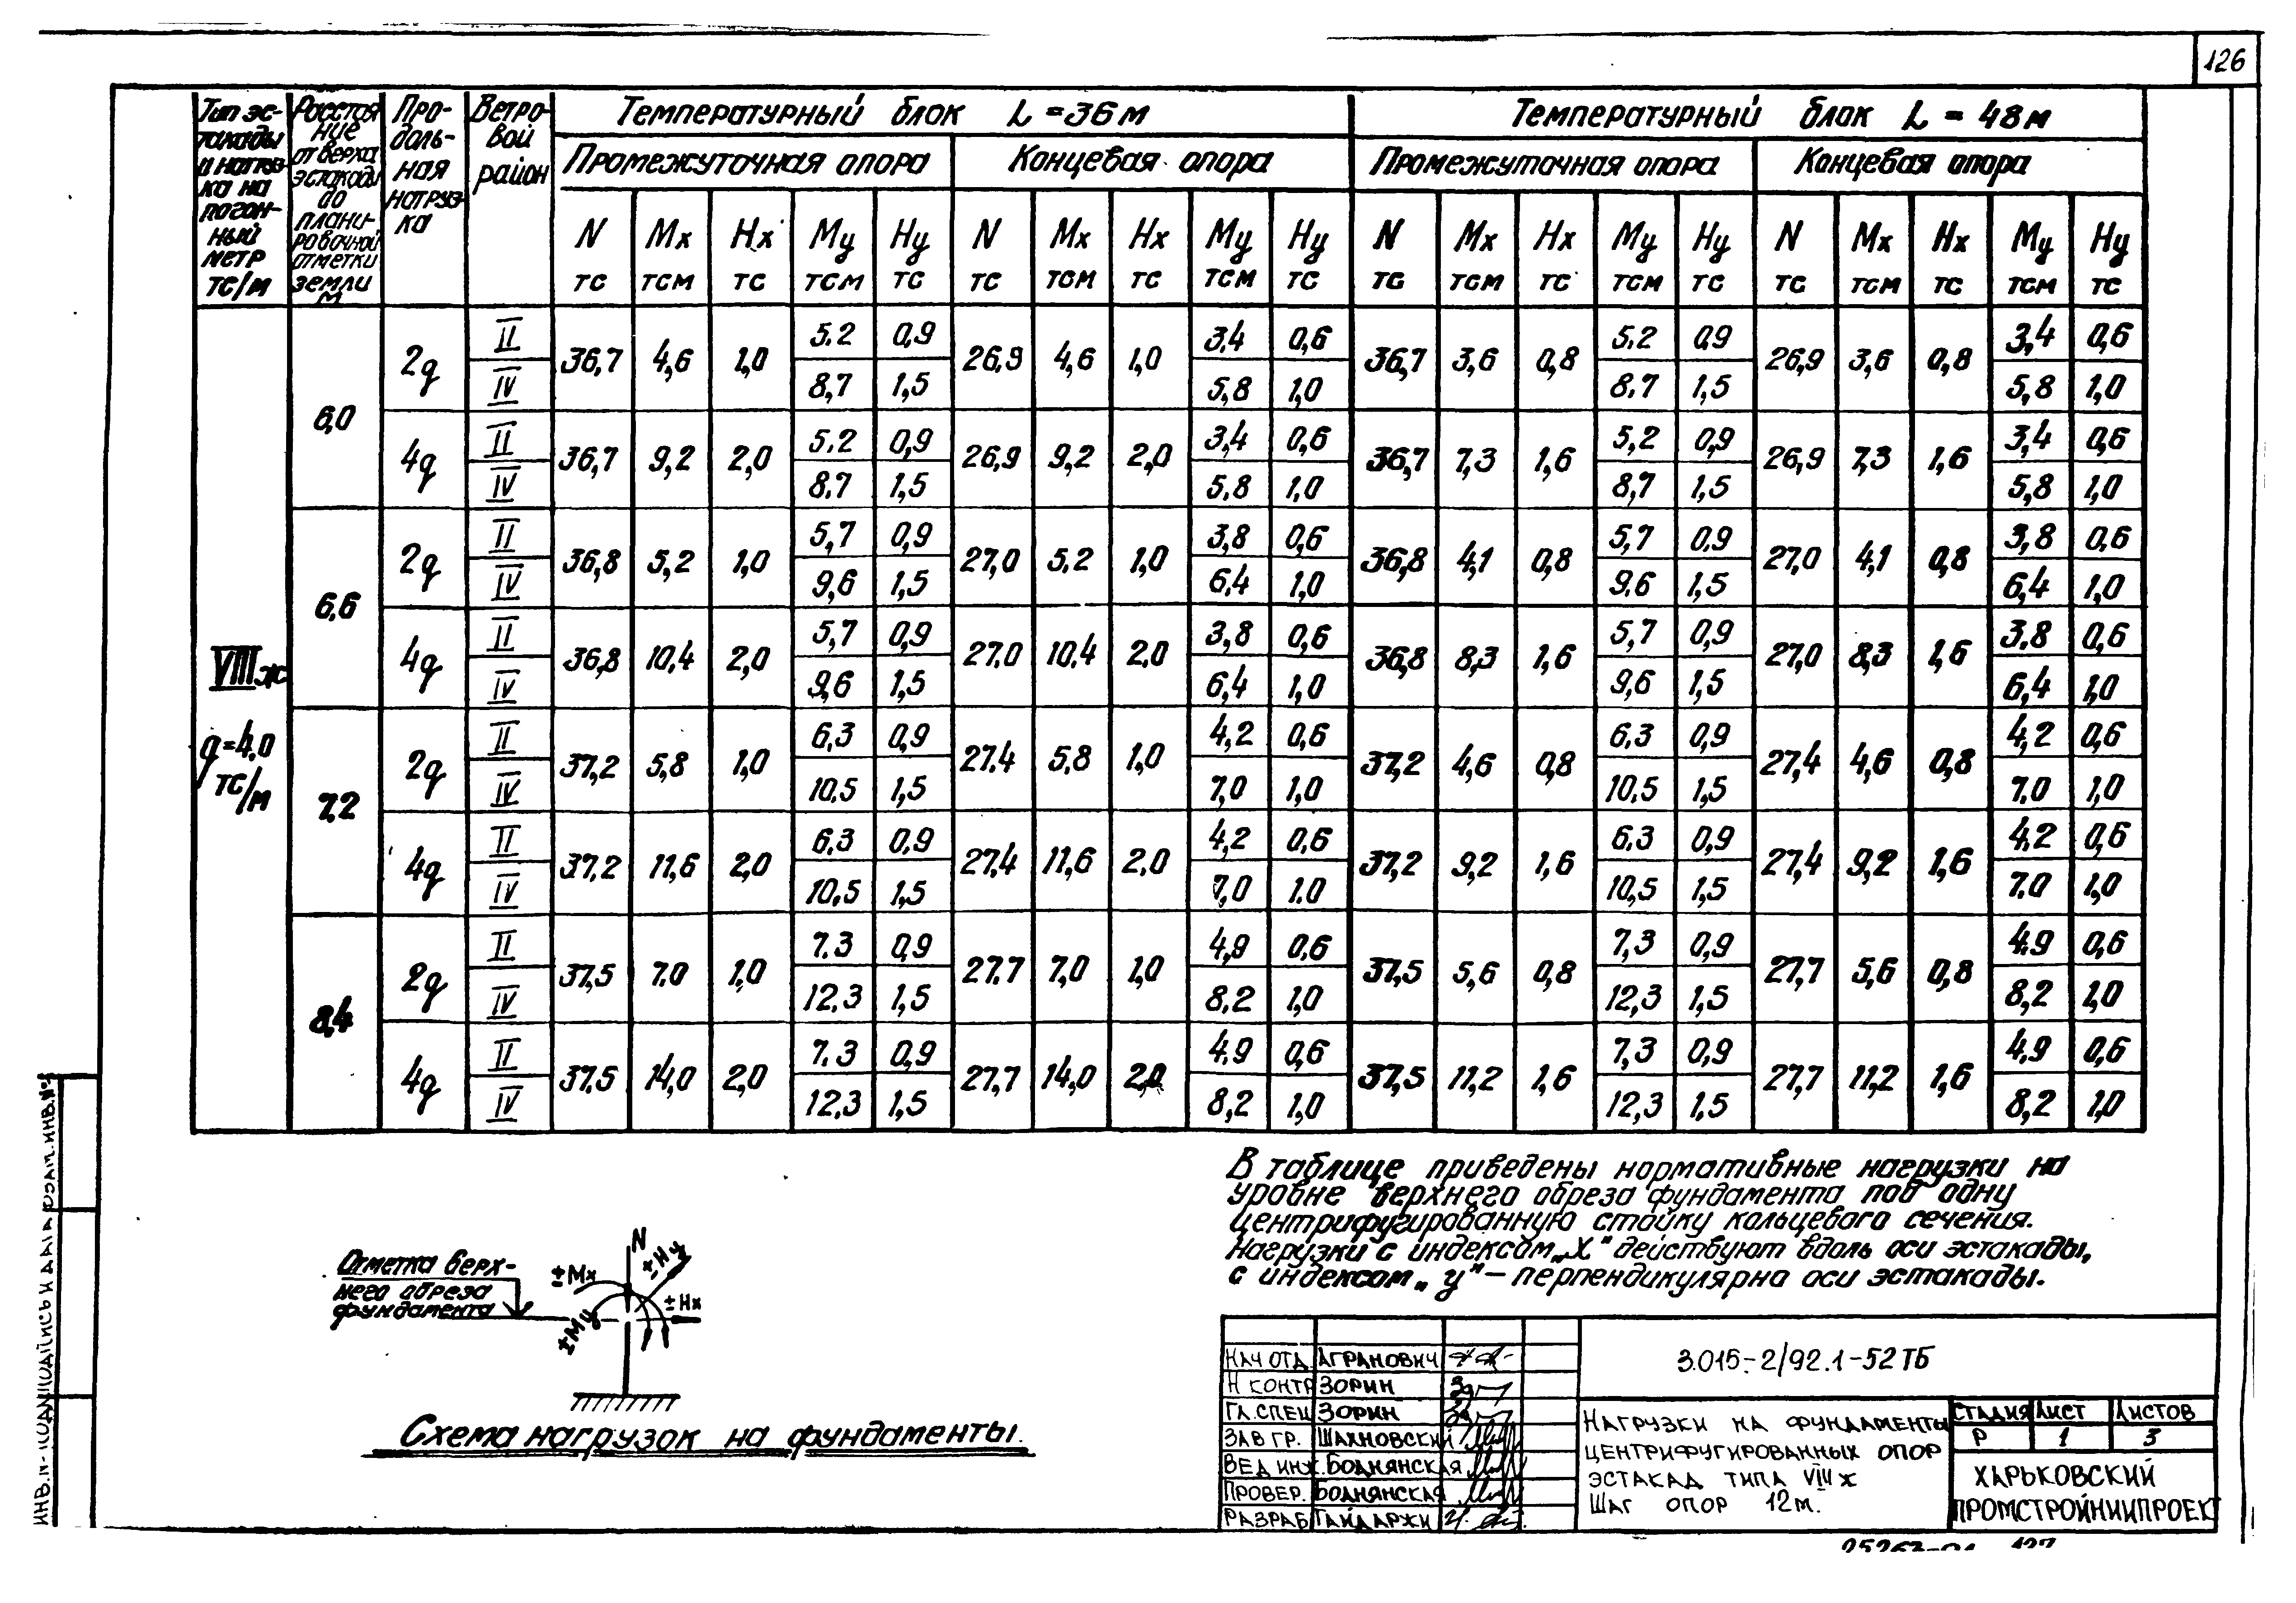 126
Тип эс-
такады
и нагруз-
ка на
погон-
ный
метр
тс/м
Расстоя
ние
от верха
эстакады
до
плани-
ровочной
отметки
земли
м
Про-
доль-
ная
нагруз-
ка
Ветро-
вой
район
Температурный блок L = 36 м
Температурный блок L = 48 м
Промежуточная опора
Концевая опора
Промежуточная опора
Концевая опора
N Mx Hx My Hy N Mx Hx My Hy N Mx Hx My Hy N Mx Hx My Hy
тс тсм тс тсм тс тс тсм тс тсм тс тс тсм тс тсм тс тс тсм тс тсм тс
VIIIж
q=4.0
тс/м
6,0
2q II 36,7 4,6 1,0 5.2 0,9 26,9 4,6 1,0 3,4 0,6 36,7 3,6 0,8 5.2 0,9 26,9 3,6 0,8 3,4 0,6
IV 8,7 1,5 5,8 1,0 8.7 1,5 5,8 1,0
4q II 36,7 9,2 2,0 5.2 0,9 26,9 9,2 2,0 3,4 0,6 36,7 7,3 1,6 5,2 0,9 26,9 7,3 1,6 3,4 0,6
IV 8.7 1,5 5.8 1,0 8,7 1,5 5,8 1,0
6,6
2q II 36,8 5,2 1,0 5,7 0,9 27,0 5.2 1,0 3,8 0,6 36,8 4,1 0,8 5,7 0,9 27,0 4,1 0,8 3,8 0,6
IV 9,6 1,5 6,4 1,0 9,6 1,5 6,4 1,0
4q II 36,8 10,4 2,0 5,7 0,9 27.0 10,4 2.0 3,8 0,6 36,8 8,3 1,6 5,7 0,9 27,0 8,3 1,6 3,8 0,6
IV 9,6 1,5 6,4 1,0 9,6 1,5 6,4 1,0
7,2
2q II 37,2 5,8 1,0 6,3 0,9 27.4 5,8 1,0 4,2 0,6 37,2 4,6 0,8 6.3 0,9 27,4 4,6 0,8 4,2 0,6
IV 10,5 1,5 7,0 1,0 10,5 1,5 7.0 1,0
4q II 37,2 11,6 2,0 6,3 0,9 27,4 11,6 2.0 4,2 0,6 37,2 9,2 1,6 6.3 0,9 27,4 9,2 1,6 4,2 0,6
IV 10,5 1,5 7,0 1.0 10,5 1,5 7.0 1,0
8,4
2q II 37,5 7.0 1,0 7.3 0,9 27.7 7,0 1,0 4,9 0,6 37,5 5,6 0,8 7,3 0,9 27,7 5,6 0,8 4,9 0,6
IV 12.3 1,5 8,2 1,0 12,3 1,5 8,2 1,0
4q II 37.5 14,0 2,0 7.3 0,9 27,7 14,0 2,0 4.9 0,6 37,5 11,2 1,6 7,3 0,9 27,7 11,2 1,6 4,9 0,6
IV 12,3 1,5 8,2 1,0 12,3 1,5 8,2 1,0
В таблице приведены нормативные нагрузки на
уровне верхнего обреза фундамента под одну
центрифугированную стойку кольцевого сечения.
Нагрузки с индексом „X" действуют вдоль оси эстакады,
с индексом „y" – перпендикулярна оси эстакады.
Отметка верх-
него обреза
фундамента
N
±Hy
±Mx
±Hx
±My
Схема нагрузок на фундаменты.
Нач отд. Агранович
Н контр Зорин
Гл. спец Зорин
Зав гр. Шахновский
Вед инж. Боднянская
Провер. Боднянская
Разраб Гайдаржи
3.015-2/92.1-52ТБ
Нагрузки на фундаменты
центрифугированных опор
эстакад типа VIIIж
Шаг опор 12м.
Стадия Лист Листов
Р 1 3
Харьковский
Промстройниипроект